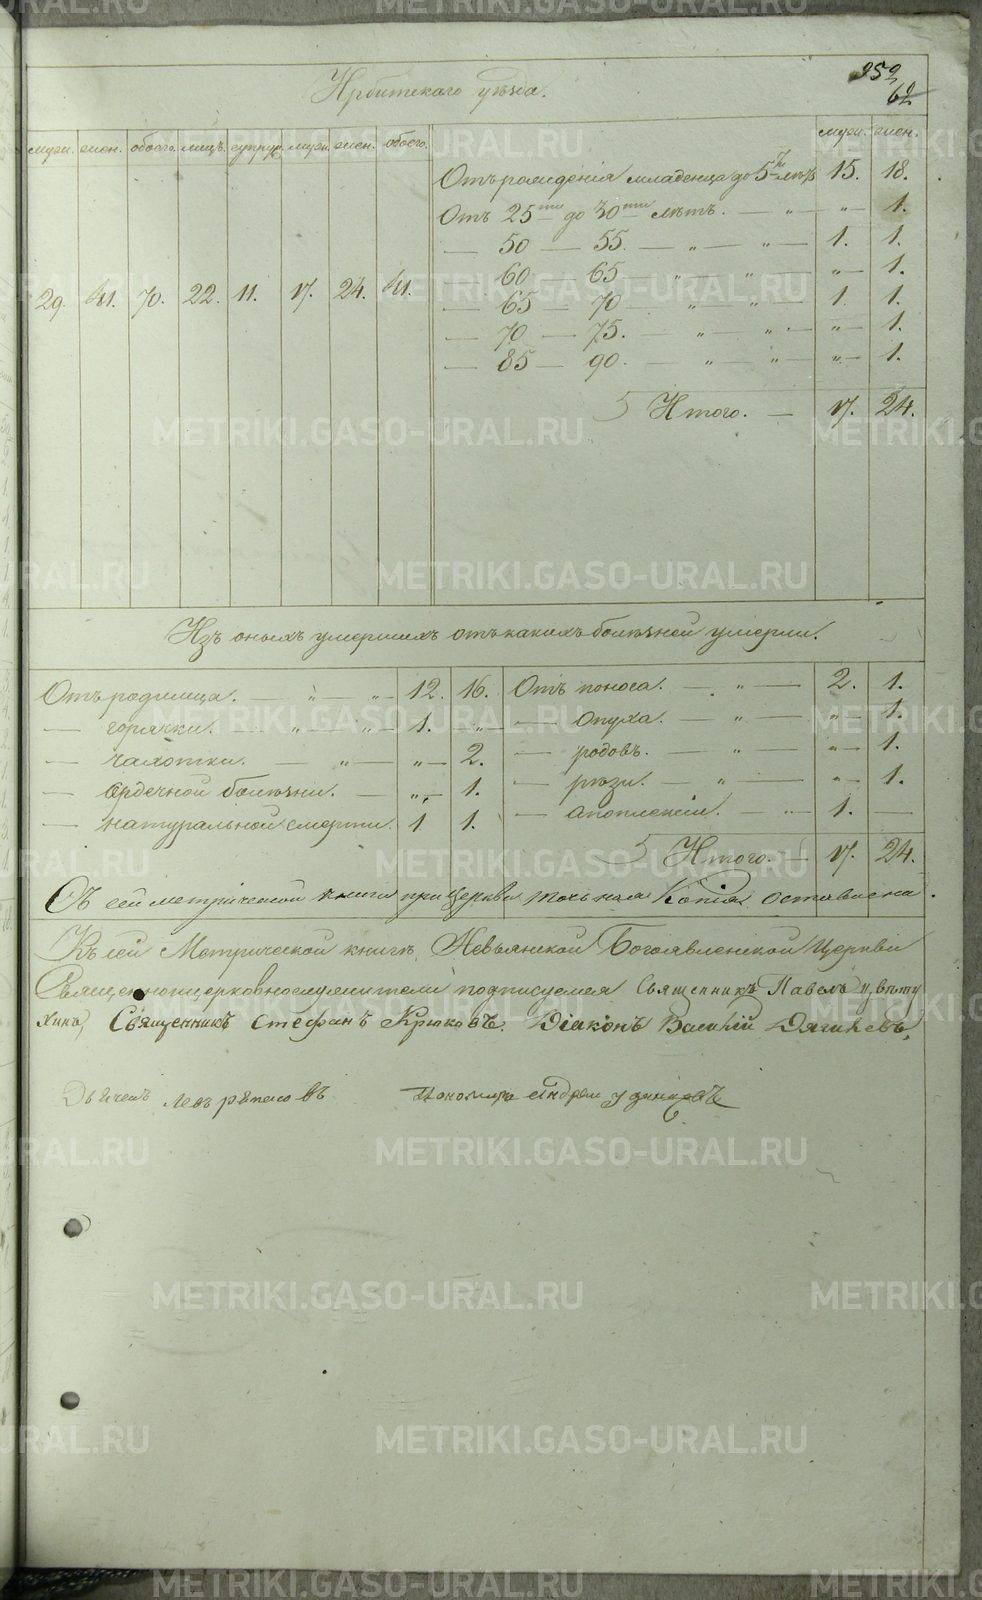 352
62
Ирбитскаго уѣзда.
мужи. жен. обоего. лицъ. супруж. мужи. жен. обоего. мужи. жен.
29. 41. 70. 22. 11. 17. 24. 41.
Отъ рожденія младенца до 5ти лѣтъ 15. 18.
Отъ 25ти до 30ти лѣтъ. — „ — „ — 1.
— 50 — 55. — „ — „ — 1. 1.
— 60 — 65 — „ — „ — „ — 1.
— 65 — 70 — „ — „ — 1. 1.
— 70 — 75. — „ — „ — „ — 1.
— 85 — 90. — „ — „ — „ — 1.
Итого. — 17. 24.
Изъ оныхъ умершихъ отъ какихъ болѣзней умерли.
Отъ родимца. — „ — „ — 12. 16.
— горячки. — „ — „ — 1. „ —
— чахотки. — „ — „ — 2.
— сердечной болѣзни. — „ — 1.
— натуральной смерти. 1 1.
Отъ поноса. — „ — 2. 1.
— опуха. — „ — „ — 1.
— родовъ. — „ — „ — 1.
— рѣзи. — „ — „ — 1.
— апоплексіи. — „ — 1. —
Итого. — 17. 24.
Съ сей метрической книги при Церкви точная Копія оставлена.
Къ сей Метрической книгѣ, Невьянской Богоявленской Церкви
Священноцерковнослужители подписуемся Священникъ Павелъ Цвѣту
хинъ, Священникъ Стефанъ Крюковъ, Діаконъ Василій Дягилевъ,
Дьячекъ Пономарь Андрей Удинцовъ
METRIKI.GASO-URAL.RU